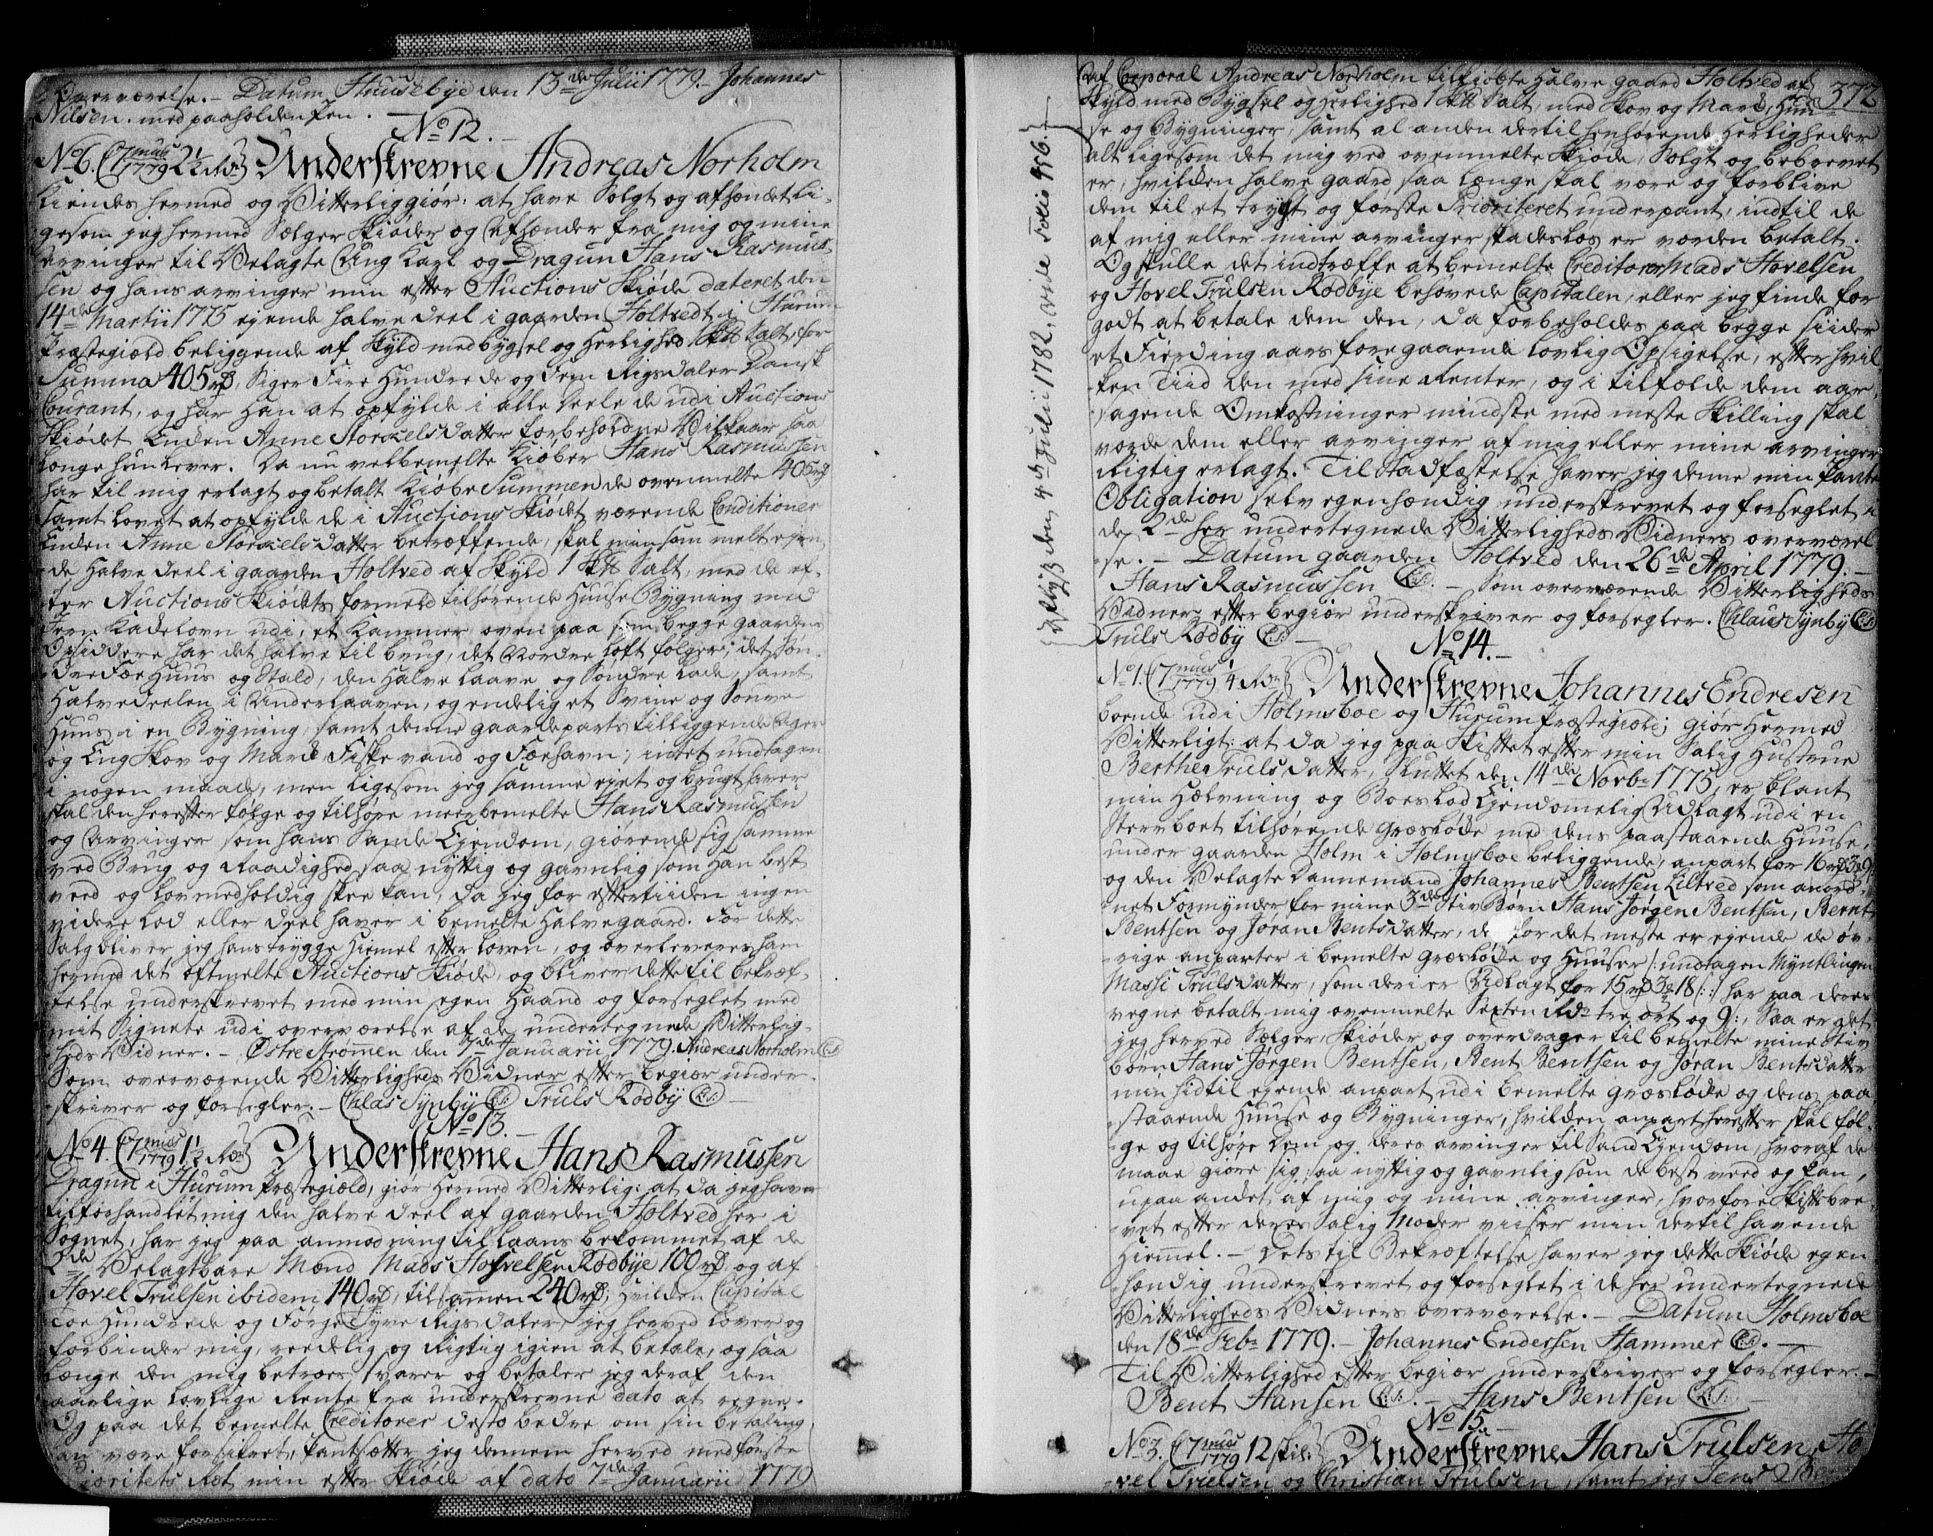 Overværelse. – Datum Huusebye den 13de Julii 1779. – Johannes
Nilsen. med paaholden Pen.
No 12.
No 6. C 7mus 1779 2½ Rdr Underskrevne Andreas Norholm
Kiendes hermed og Vitterliggiør: at have Solgt og afhændet li-
gesom jeg hermed Sælger Skiøder og Afhænder fra mig og mine
Arvinger til Velagte Ung Karl og Dragun Hans Rasmus-
sen og hans arvinger min efter Auctions Skiøde dateret den
14de Martii 1775 ejende halve deel i gaarden Holtvedt i Hurum
Præstegield beliggende af Skyld med bygsel og Herlighed 1 Skp Salt, for
Summa 405 rd, Siger Fire Hundrede og Fem Rigsdaler Dansk
Courant, og har han at opfylde i alle deele de udi Auctions
Skiødet Enken Anne Storkelsdatter forbeholdne Vilkaar saa
længe hun lever. Da nu velbemelte Kiøber Hans Rasmussen
har til mig erlagt og betalt Kiøbe Summen de ovenmelte 405 rd
samt lovet at opfylde de i Auctions Skiødet værende Conditioner
Enken Anne Storkelsdatter betreffende, skal min som melt ejen-
de halve deel i gaarden Holtved af Skyld 1 Skp Salt, med de ef-
ter Auctions Skiødets formeld tilhørende Huuse Bygning med
Jern Kackelovn udi, et Kammer oven paa som begge gaardens
Opsiddere har det halve til brug, det Nordre Loft følger; det Søn-
dre Fæe Huus og Stald, den halve Laave og Søndre Lade, samt
Halvedeelen i Underlaaven, og endelig et Svine og
Huus i en Bygning, samt denne gaardeparts tilliggende Ager
og Eng Skov og Mark Fiskevand og Fæehavn; intet undtagen
i nogen maade, men ligesom jeg samme ejet og brugt haver
skal den herefter følge og tilhøre meerbemelte Hans Rasmussen
og Arvinger som hans Sande Ejendom, giørende sig samme
ved Brug og Raadighed saa nyttig og gavnlig som han best
veed og lovmedholdig skee kan, da jeg for eftertiiden ingen
videre Lod eller Deel haver i bemelte Halve gaard. For dette
Salg bliver jeg hans trygge Hiemel efter loven, og overleveres ham
hermed det oftmelte Auctions Skiøde, og bliver dette til bekræf-
telse underskrevet med min egen Haand og forseglet med
mit Signete udi overværelse af de undertegnede Vitterlig-
heds Vidner. – Østre Strømmen den 7de Januarii 1779. Andreas Norholm (L.S.)
Som overværende Vitterligheds Vidner efter begiær under-
skriver og forsegler. – Chlas Synby (L.S.) Truls Rødby (L.S.) –
No 13.
No 4. C 7mus 1779 1½ Rdr Underskrevne Hans Rasmussen
Dragun i Hurum Præstegield, giør Hermed Vitterlig: at da jeg haver
tilforhandlet mig den halve Deel af gaarden Holtved her i
Sognet, har jeg paa anmodning til Laans bekommet af de
2de Velagtbare Mænd Mads Hovelsen Rødbye 100 rd og af
Hovel Trulsen ibidem 140 rd, tilsammen 240 rd, hvilken Capital
Toe Hundrede og Førgetyve Rigsdaler, jeg herved lover og
forbinder mig, reedelig og rigtig igien at betale, og saa
længe den mig betroes svarer og betaler jeg deraf den
aarlige lovlige Rente fra underskrevne dato at regne.
Og paa det bemelte Creditores desto bedre om sin betaling
kan være forsikret, Pantsætter jeg dennem herved med første
Prioritets Ret min efter Skiøde af dato 7de Januarii 1779
af Corporal Andreas Norholm tilkiøbte halve gaard Holtved af 372
Skyld med Bygsel og Herlighed 1 Skp Salt, med Skov og Mark, Huu-
se og Bygninger, samt al anden dertil henhørende Herligheder
alt ligesom det mig ved ovenmelte Skiøde, Solgt og bebrevet
er, hvilken halve gaard, saa længe skal være og forblive
dem til et trygt og første Prioriteret underpant, indtil de
af mig eller mine arvinger skadesløs er vorden betalt.
Og skulle det indtræffe at bemelte Creditorer Mads Hovelsen
og Hovel Trulsen Rødbye behøvede Capitalen, eller jeg finde for
godt at betale dem den, da forbeholdes paa begge Siider
et Fierding aars foregaaende lovlig Opsigelse, efter hvil-
ken Tiid den med sine Renter, og i tilfælde dem aar-
sagende Omkostninger mindste med meste Skilling skal
vorde dem eller arvinger af mig eller mine arvinger
Rigtig erlagt. Til Stadfæstelse haver jeg denne min Pante
Obligation selv egenhændig underskrevet og forseglet i
de 2de her undertegnede Vitterligheds Vidners overværel-
se. – Datum gaarden Holtved den 26de April 1779. –
Hans Rasmussen (L.S.) – Som overværende Vitterligheds
Vidner efter begiær underskriver og forsegler. Chlaus Synby (L.S.)
Truls Rødby (L.S.) –
{Aflyst den 4de Julii 1782, vide Folio 456}
No 14.
No 1. C 7mus 1779 ¼ Rdr Underskrevne Johannes Endresen
boende udi Holmsboe og Hurum Præstegield; giør hermed
Vitterligt: at da jeg paa Skiftet efter min Salig Hustrue
Berthe Trulsdatter, Sluttet den 14de Novbr 1775, er blant
min Hælvning og Boeslod Ejendommelig Udlagt udi en
Sterboet tilhørende græsløkke med dens paastaaende Huuse,
under gaarden Holm i Holmsboe beliggende, anpart for 16 rd 3 9
og den Velagte Dannemand Johannes Bentsen Kiltved som anord-
net Formynder for mine 3de Stiv Børn Hans Jørgen Bentsen, Bernt
Bentsen og Jøran Bentsdatter, de for det meste er ejende de øv-
rige anparter i bemelte græsløkke og Huuser /: undtagen Myntlingen
Massi Trulsdatter, som deri er Udlagt for 15 rd 3 18 :/ har paa deres
vegne betalt mig ovenmelte Sexten Rdr tre ort og 9 s, Saa er det
jeg herved Sælger, Skiøder og overdrager til bemelte mine Stiv
børn Hans Jørgen Bentsen, Bent Bentsen og Jøran Bentsdatter
min hidtil ejende anpart udi bemelte græsløkke og dens paa
staaende Huuse og Bygninger, hvilken anpart herefter skal føl-
ge og tilhøre dem og deres arvinger til Sand Ejendom, hvoraf de
maae giøre sig saa nyttig og gavnlig som de best veed og kan,
upaaandet af mig og mine arvinger, hvorfore Skiftebre-
vet efter deres Salig Moder viiser min dertil havende
Hiemel. – Dets til Bekræftelse haver jeg dette Skiøde egen
hændig underskrevet og forseglet i de her undertegnede
Vitterligheds Vidners overværelse. – Datum Holmsboe
den 18de Febr 1779. – Johannes Endersen Hammer (L.S.) –
Til Vitterlighed efter begiær underskriver og forsegler. –
Bent Hansen (L.S.) – Hans Bentsen (L.S.)
No 15.
No 3. C 7mus 1779 12 Skil: Underskrevne Hans Trulsen, Ho-
vel Trulsen og Christian Trulsen, samt jeg Jens